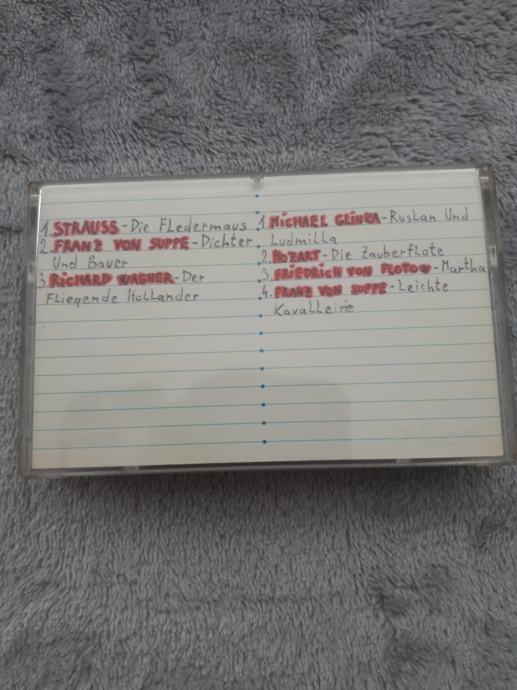 1. STRAUSS - Die Fledermaus
2. FRANZ VON SUPPE - Dichter
Und Bauer
3. RICHARD WAGNER - Der
Fliegende Hollander
1. MICHAEL GLINKA - Ruslan Und
Ludmilla
2. MOZART - Die Zauberflote
3. FRIEDRICH VON FLOTOW - Martha
4. FRANZ VON SUPPE - Leichte
Kavalleirie